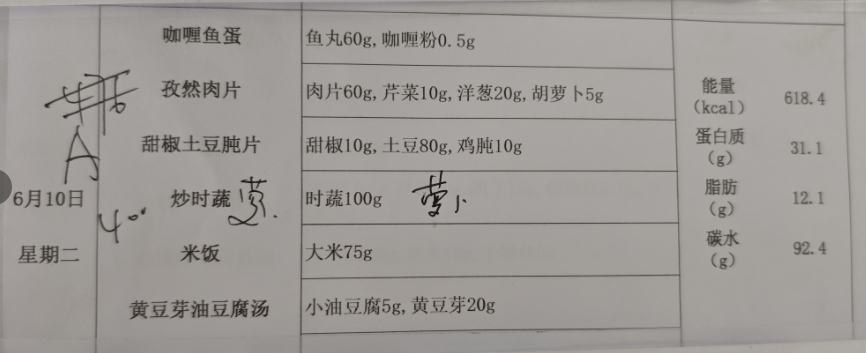 咖喱鱼蛋 鱼丸60g,咖喱粉0.5g
孜然肉片 肉片60g,芹菜10g,洋葱20g,胡萝卜5g
能量 (kcal) 618.4
A
甜椒土豆肫片 甜椒10g,土豆80g,鸡肫10g
蛋白质 (g) 31.1
6月10日 炒时蔬 时蔬100g 萝卜
脂肪 (g) 12.1
400
星期二 米饭 大米75g
碳水 (g) 92.4
黄豆芽油豆腐汤 小油豆腐5g,黄豆芽20g